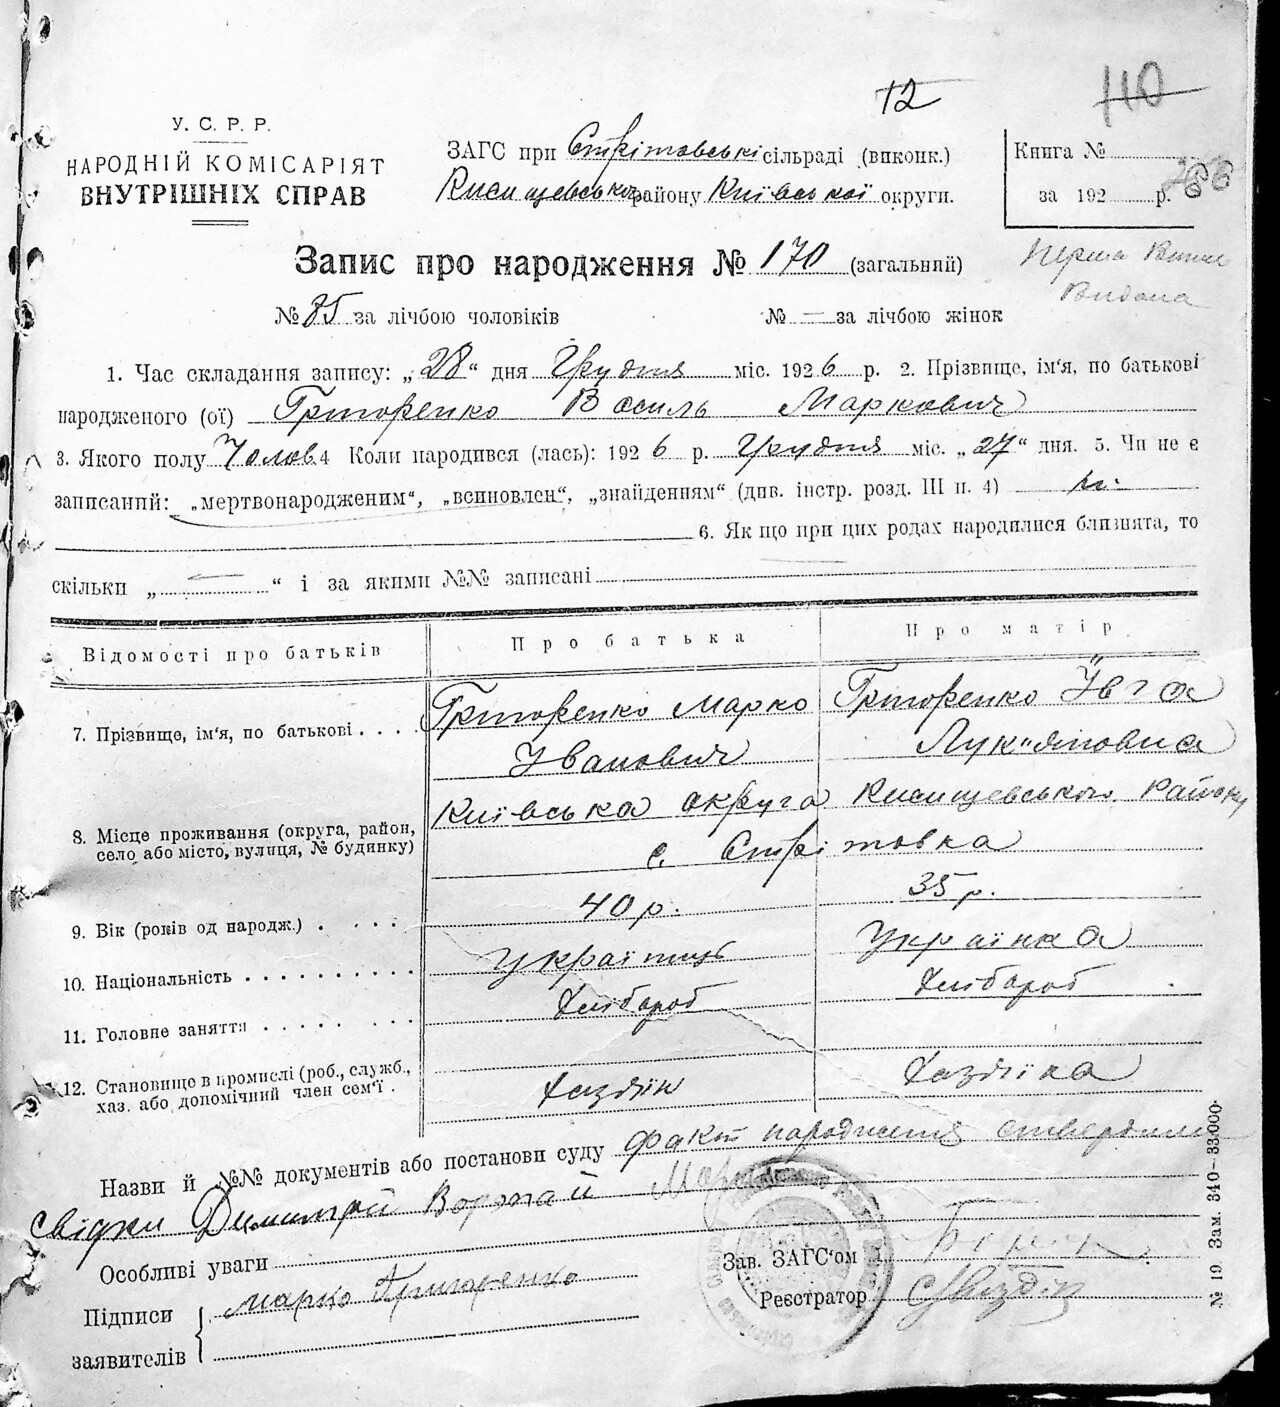 12
110
У. С. Р. Р.
НАРОДНІЙ КОМІСАРІЯТ
ВНУТРІШНІХ СПРАВ
ЗАГС при Стрітовській сільраді (виконк.)
району Київської округи.
Книга №
за 192 р.
266
Запис про народження № 170 (загальний)
Перша
Видана
№ 85 за лічбою чоловіків № — за лічбою жінок
1. Час складання запису: „28“ дня Грудня міс. 1926 р. 2. Прізвище, ім'я, по батькові
народженого (ої) Григоренко Василь Маркович
3. Якого полу Чолов. 4 Коли народився (лась): 1926 р. Грудня міс. „27“ дня. 5. Чи не є
записаний: „мертвонародженим“, „всиновлен“, „знайденням“ (див. інстр. розд. III п. 4) ні.
6. Як що при цих родах народилися близнята, то
скільки „ — “ і за якими №№ записані
Відомості про батьків Про батька Про матір
7. Прізвище, ім'я, по батькові . . . . Григоренко Марко Григоренко Ївга
Іванович Лук"яновна
8. Місце проживання (округа, район, Київська округа району
село або місто, вулиця, № будинку) с. Стрітовка
9. Вік (років од народж.) . . . . 40 р. 35 р.
10. Національність . . . . . . . . . . Українець Українка
11. Головне заняття . . . . . . . . Хлібороб Хлібороб
12. Становище в промислі (роб., службв., Хазяїн Хазяїка
хаз. або допомічний член сем'ї .
Назви й №№ документів або постанови суду факт народження ствердили
свідки Димитрій Ворона й
Особливі уваги
Зав. ЗАГС'ом
Підписи Марко Григоренко
Реєстратор
заявителів
№ 19. Зам. 340–33.000.